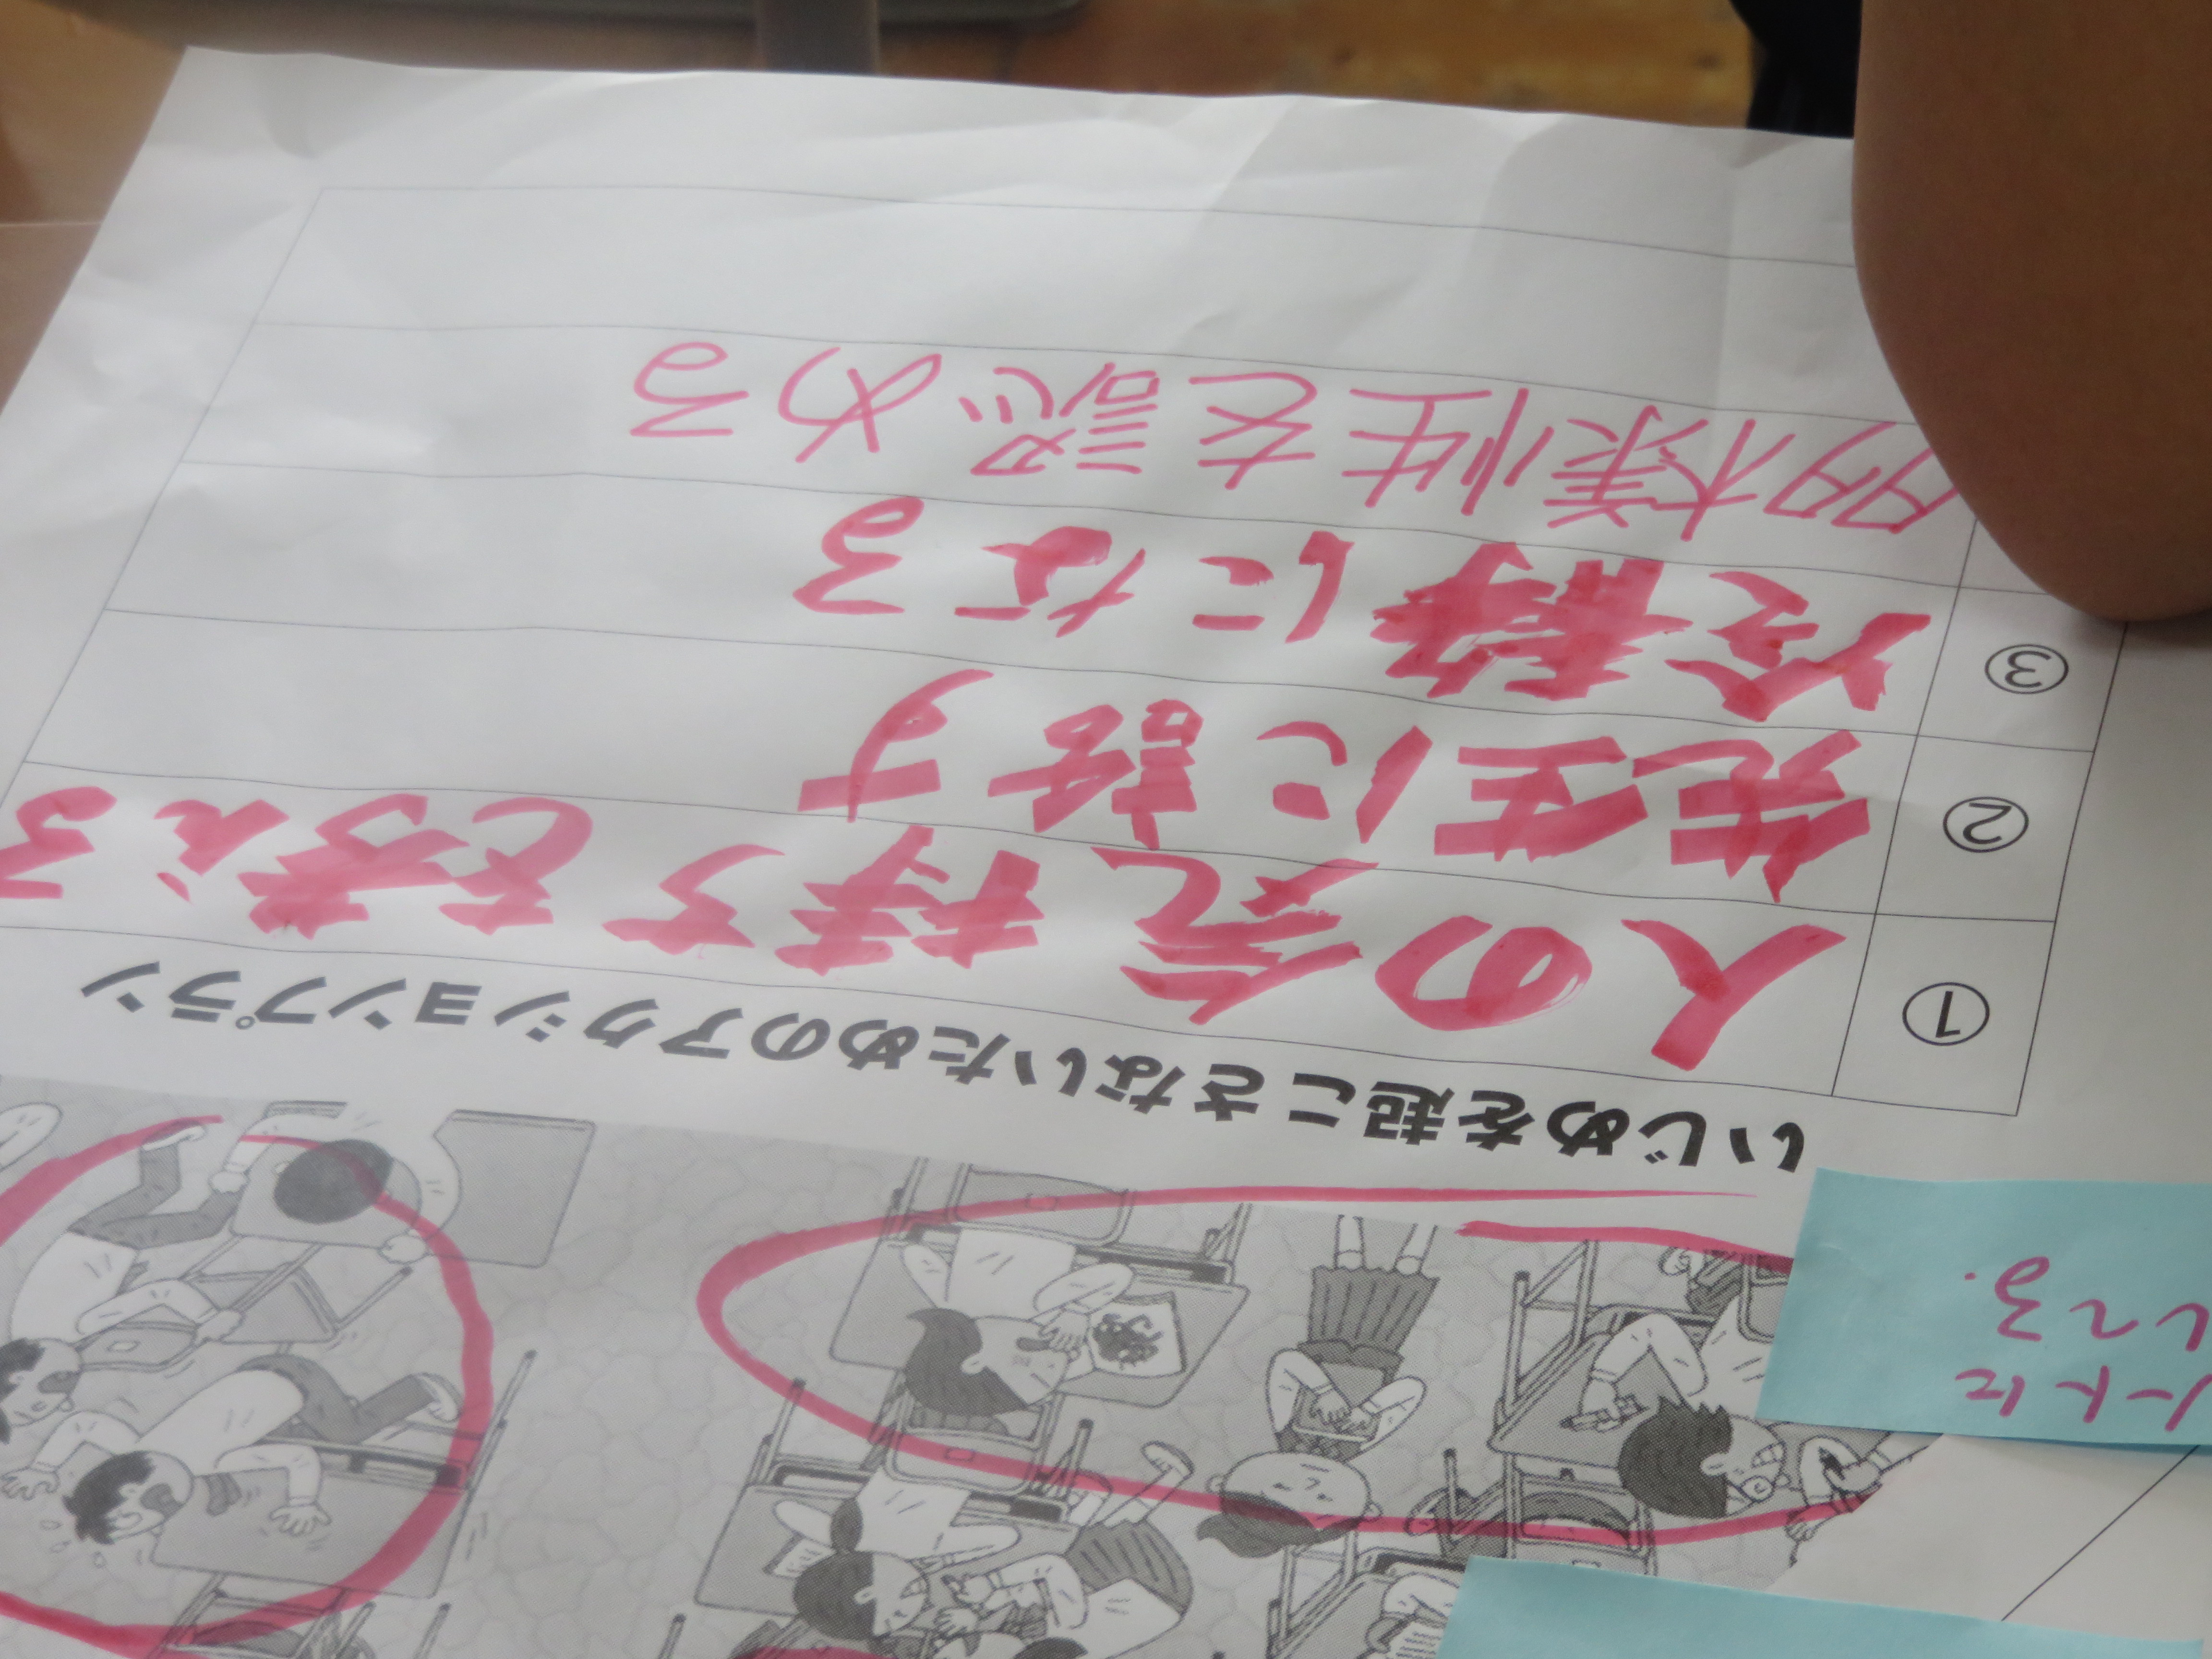 いじめを起こさないためのアクションプラン
① 人の気持ちを考える
② 先生に話す
③ 冷静になる
多様性を認める
ノートに
してる.